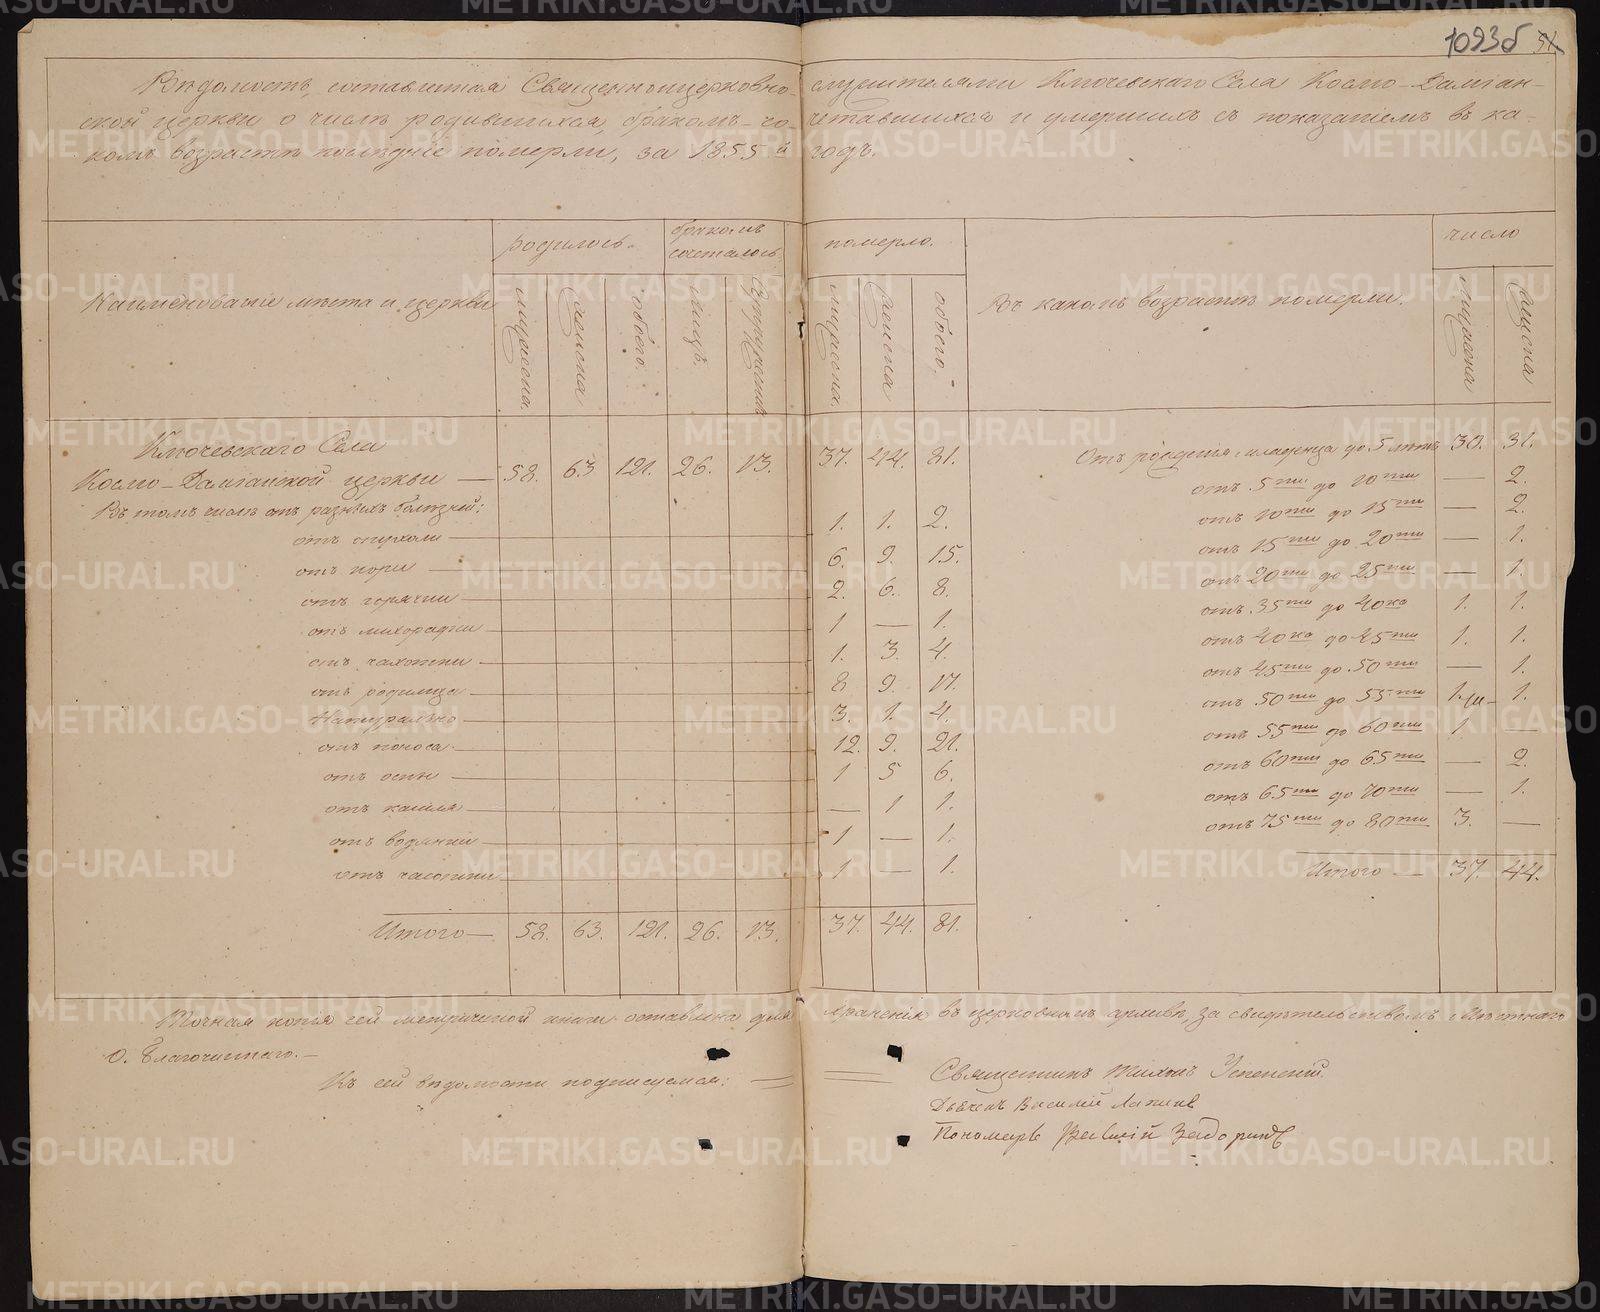 1093б 51
Ведомость, составленная Священноцерковно-служителями Ключевскаго Села Космо-Дамиан-
ской церкви о числѣ родившихся, бракомъ-со-четавшихся и умершихъ съ показанiемъ въ ка-
комъ возрастѣ последнiе померли, за 1855й годъ.
Наименованiе мѣста и церкви
родилось. бракомъ сочеталось. померло. Въ какомъ возрастѣ померли. число
мужеска. женска обоего. лицъ. Супружествъ мужеска. женска обоего. мужеска женска
Ключевскаго Села
Космо-Дамiанской церкви — 58. 63 121. 26. 13. 37. 44. 81.
Въ томъ числѣ отъ разныхъ болѣзней:
отъ опухоли 1. 1. 2.
отъ кори 6. 9. 15.
отъ горячки 2. 6. 8.
отъ лихорадки 1 — 1.
отъ чахотки 1. 3. 4.
отъ родимца 8 9. 17.
Натурально 3. 1. 4.
отъ поноса 12. 9. 21.
отъ оспы 1 5 6.
отъ кашля — 1 1.
отъ водянки 1 — 1.
1 — 1.
Итого — 58. 63. 121. 26. 13. 37. 44. 81.
Отъ рожденiя младенца до 5 лѣтъ 30. 31.
отъ 5ти до 10ти — 2.
отъ 10ти до 15ти — 2.
отъ 15ти до 20ти — 1.
отъ 20ти до 25ти — 1.
отъ 35ти до 40ка 1. 1.
отъ 40ка до 45ти 1. 1.
отъ 45ти до 50ти — 1.
отъ 50ти до 55ти 1. 1.
отъ 55ти до 60ти 1 —
отъ 60ти до 65ти — 2.
отъ 65ти до 70ти — 1.
отъ 75ти до 80ти 3. —
Итого — 37. 44.
Точная копiя сей метрической книги оставлена для храненiя въ церковномъ архивѣ, за свидѣтельствомъ Мѣстнаго
О. Благочиннаго.—
Къ сей вѣдомости подписуемся:
Священникъ Тихонъ Успенскiй.
Дьячекъ Василiй Лапинъ
Пономарь
METRIKI.GASO-URAL.RU